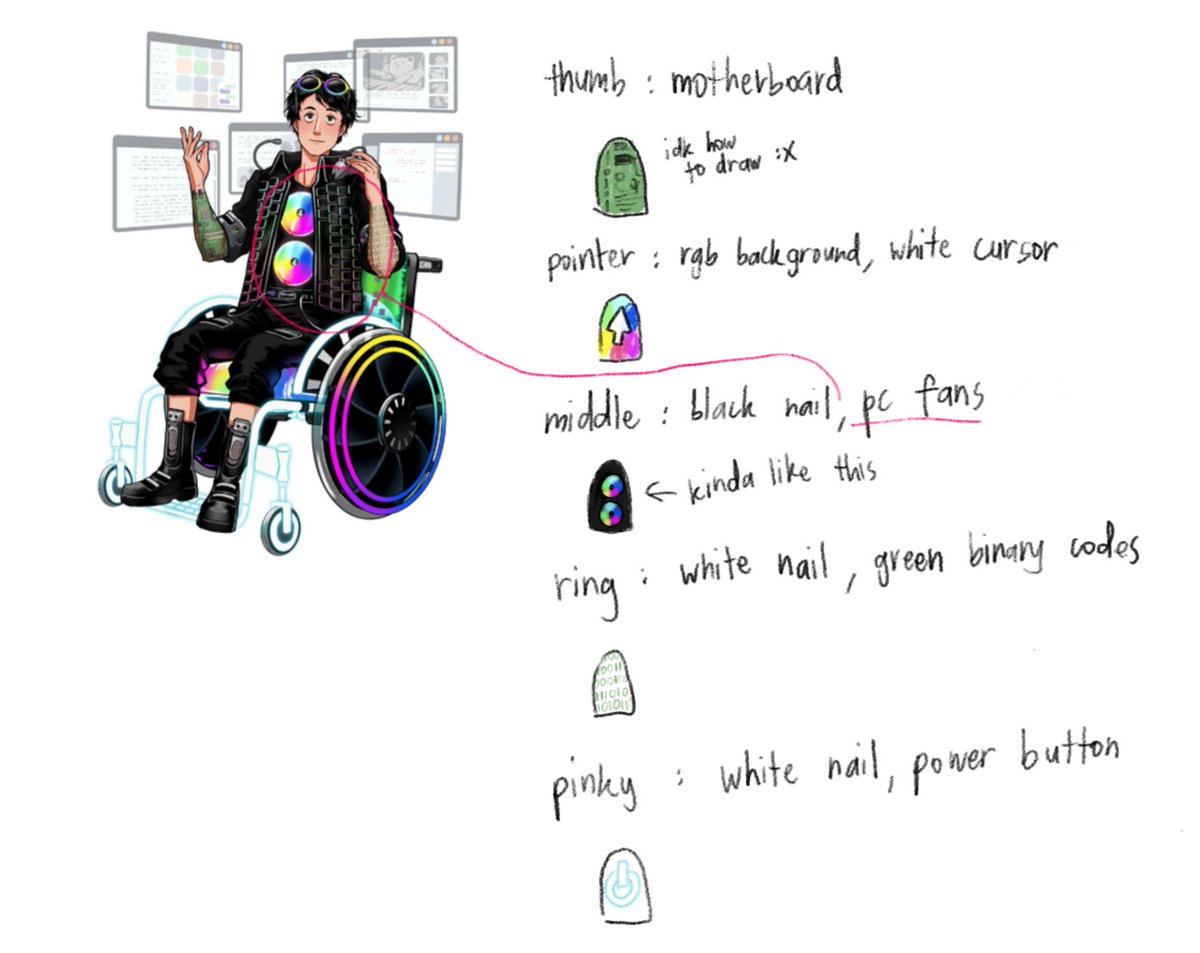 thumb : motherboard
idk how
to draw :X
pointer : rgb background, white cursor
middle : black nail, pc fans
← kinda like this
ring : white nail, green binary codes
10011
00010
111010
101011
pinky : white nail, power button